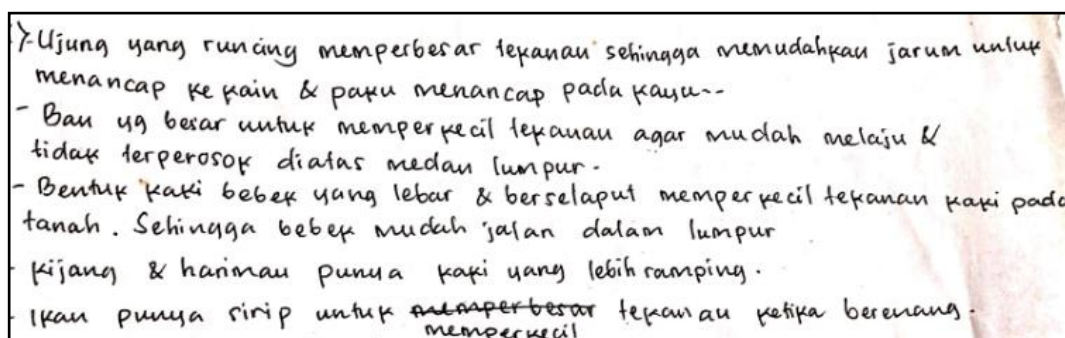 - Ujung yang runcing memperbesar tekanan sehingga memudahkan jarum untuk
menancap ke kain & paku menancap pada kayu--
- Ban yg besar untuk memperkecil tekanan agar mudah melaju &
tidak terperosok diatas medan lumpur.
- Bentuk kaki bebek yang lebar & berselaput memperkecil tekanan kaki pada
tanah. Sehingga bebek mudah jalan dalam lumpur
- kijang & harimau punya kaki yang lebih ramping.
- Ikan punya sirip untuk memperbesar tekanan ketika berenang.
memperkecil